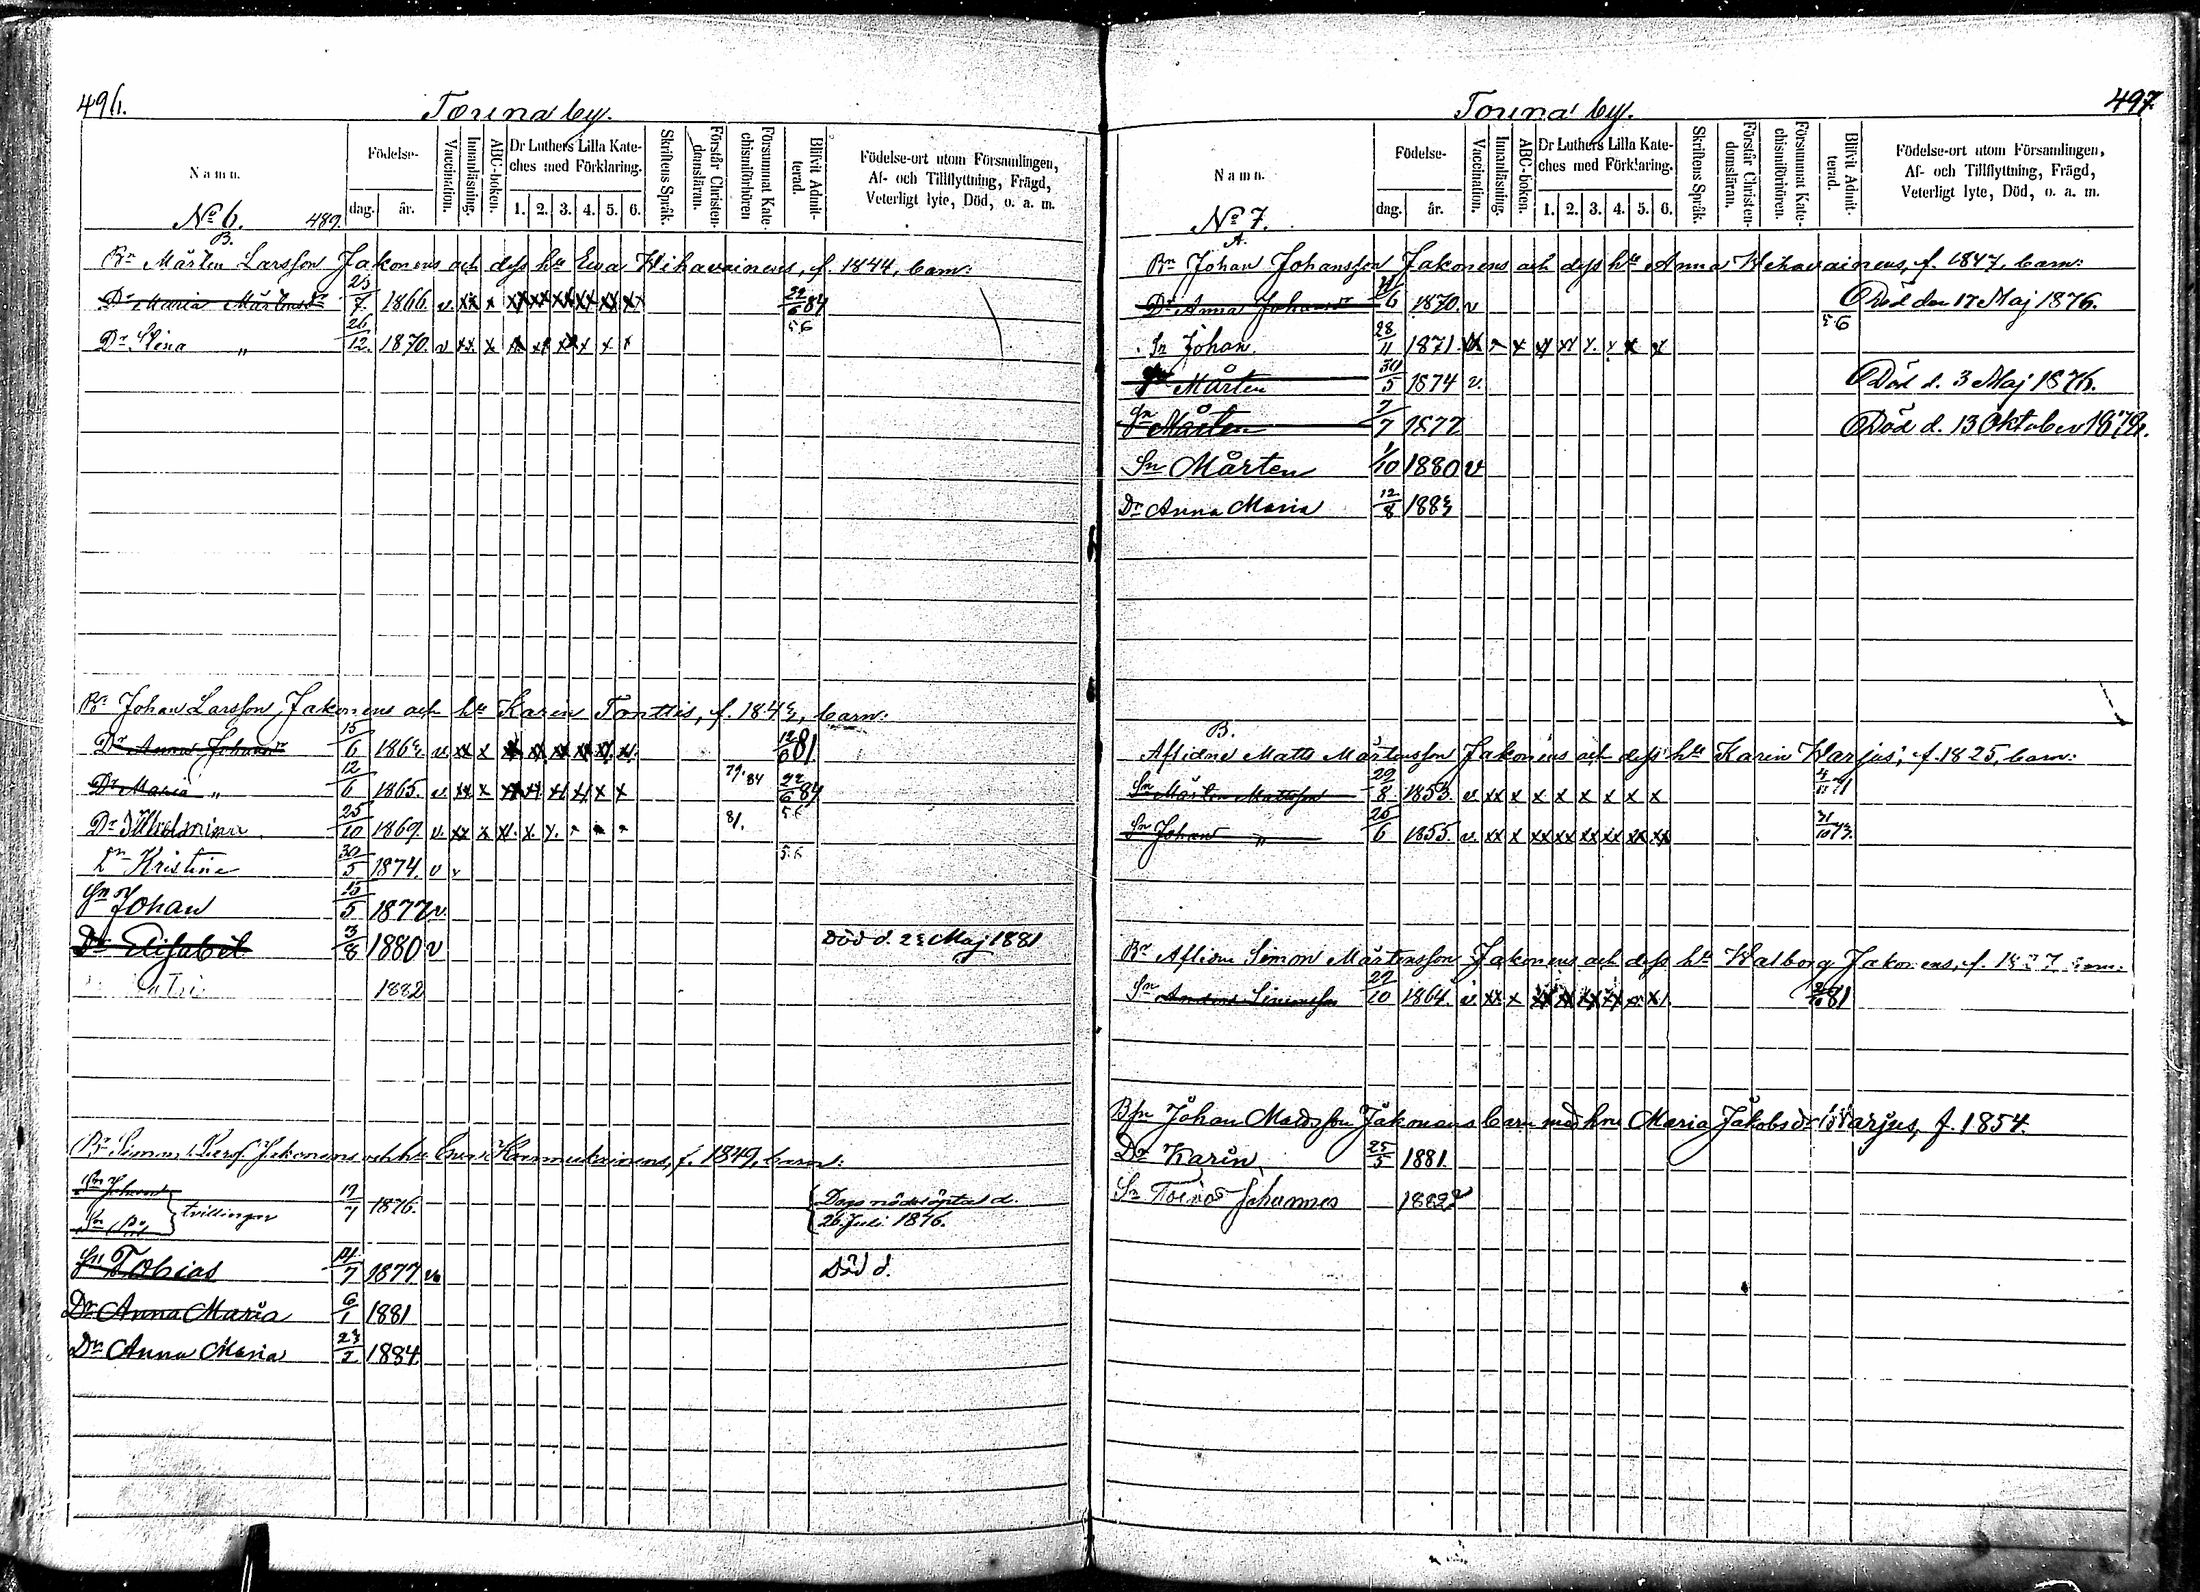 496.
Touna by.
Namn.
Födelse-
dag.
år.
Vaccination.
Innanläsning.
ABC-boken.
Dr Luthers Lilla Kate-
ches med Förklaring.
1. 2. 3. 4. 5. 6.
Skriftens Språk.
Förstår Christen-
domsläran.
Försummat Kate-
chismiförhören
Blifvit Admit-
terad.
Födelse-ort utom Församlingen,
Af- och Tillflyttning, Frägd,
Veterligt lyte, Död, o. a. m.
No 6. 489.
B.
Bn Mårten Larsson Jakonens och dess hu Ewa Wihavainens, f. 1844, barn:
Dr Maria Mårtensdr 23/7 1866. v. xx x xx xx xx xx xx xx 22/6 84
Dr Stina " 26/12. 1870. v xx. x x. xx xx x x x 86
Bn Johan Larsson Jakonens och hu Karin Tonttis, f. 184, barn:
Dr Anna Johansdr 15/6 186 v. xx x xx xx xx xx xx. xx. 12/6 81.
Dr Maria " 12/6 1865. v. xx x xx xx xx xx x x 79. 84 22/6 84
Dr Wilhelmina. 25/10 1869. v. xx x xx. x. x. 81. 86
Dr Kristina 30/5 1874. v 86
Sn Johan 15/5 1877 v.
Dr Elisabet 3/8 1880 v Död d. 23 Maj 1881
1882
Bn Simon Jakonens och hu f. 1849, barn:
Sn Johan
Sn
tvillingar 17/7 1876. Dogo nöddöpta d.
26. Juli 1876.
Sn Tobias 7 1877 v. Död d.
Dr Anna Maria 6/1 1881
Dr Anna Maria 23/2 1884
497.
Touna by.
Namn.
Födelse-
dag.
år.
Vaccination.
Innanläsning.
ABC-boken.
Dr Luthers Lilla Kate-
ches med Förklaring.
1. 2. 3. 4. 5. 6.
Skriftens Språk.
Förstår Christen-
domsläran.
Försummat Kate-
chismiförhören.
Blifvit Admit-
terad.
Födelse-ort utom Församlingen,
Af- och Tillflyttning, Frägd,
Veterligt lyte, Död, o. a. m.
No 7.
A.
Bn Johan Johansson Jakonens och dess hu Anna Wihavainens, f. 1847, barn:
Dr Anna Johansdr 6 1870. v Död den 17 Maj 1876.
Sn Johan. 28/11 1871. x x xx x. x x x 86
Sn Mårten 30/5 1874 v. Död d. 3 Maj 1876.
Sn Mårten 7/7 1877 Död d. 13 Oktober 1878.
Sn Mårten 1/10 1880 v
Dr Anna Maria 12/8 1883
B.
Aflidne Matts Mårtensson Jakonens och dess hu Karin Warjus, f. 1825, barn:
Sn Mårten Mattsson 29/8. 1853. v. xx x x x x x x x 71
Sn Johan " 26/6 1855. v. xx x xx xx xx xx xx xx 31/10 73.
Bn Aflidne Simon Mårtensson Jakonens och dess hu Walborg Jakonens, f. 1827 barn:
Sn Anders Simonsson 29/10 1864. v. xx x xx xx xx xx x x. 81
Bsn Johan Mattsson Jakonens barn med hru Maria Jakobsdr Warjus, f. 1854.
Dr Karin 25/5 1881.
Sn Toivo Johannes 1882